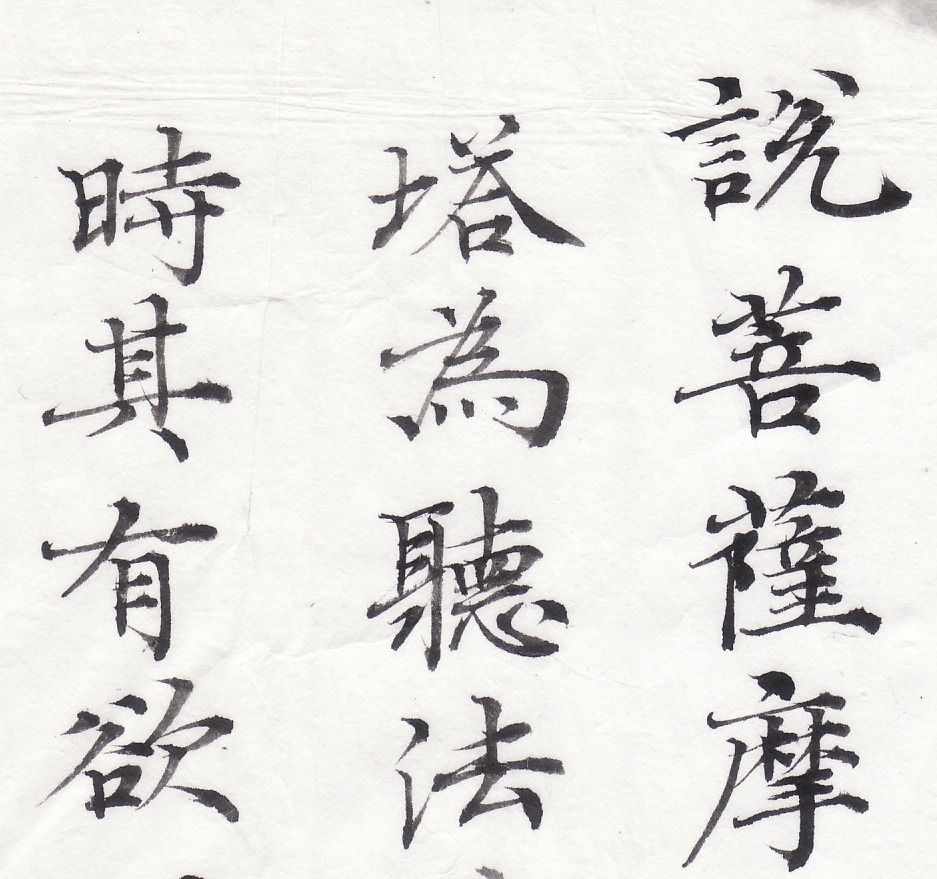 說菩薩摩
塔為聽法
時其有欲